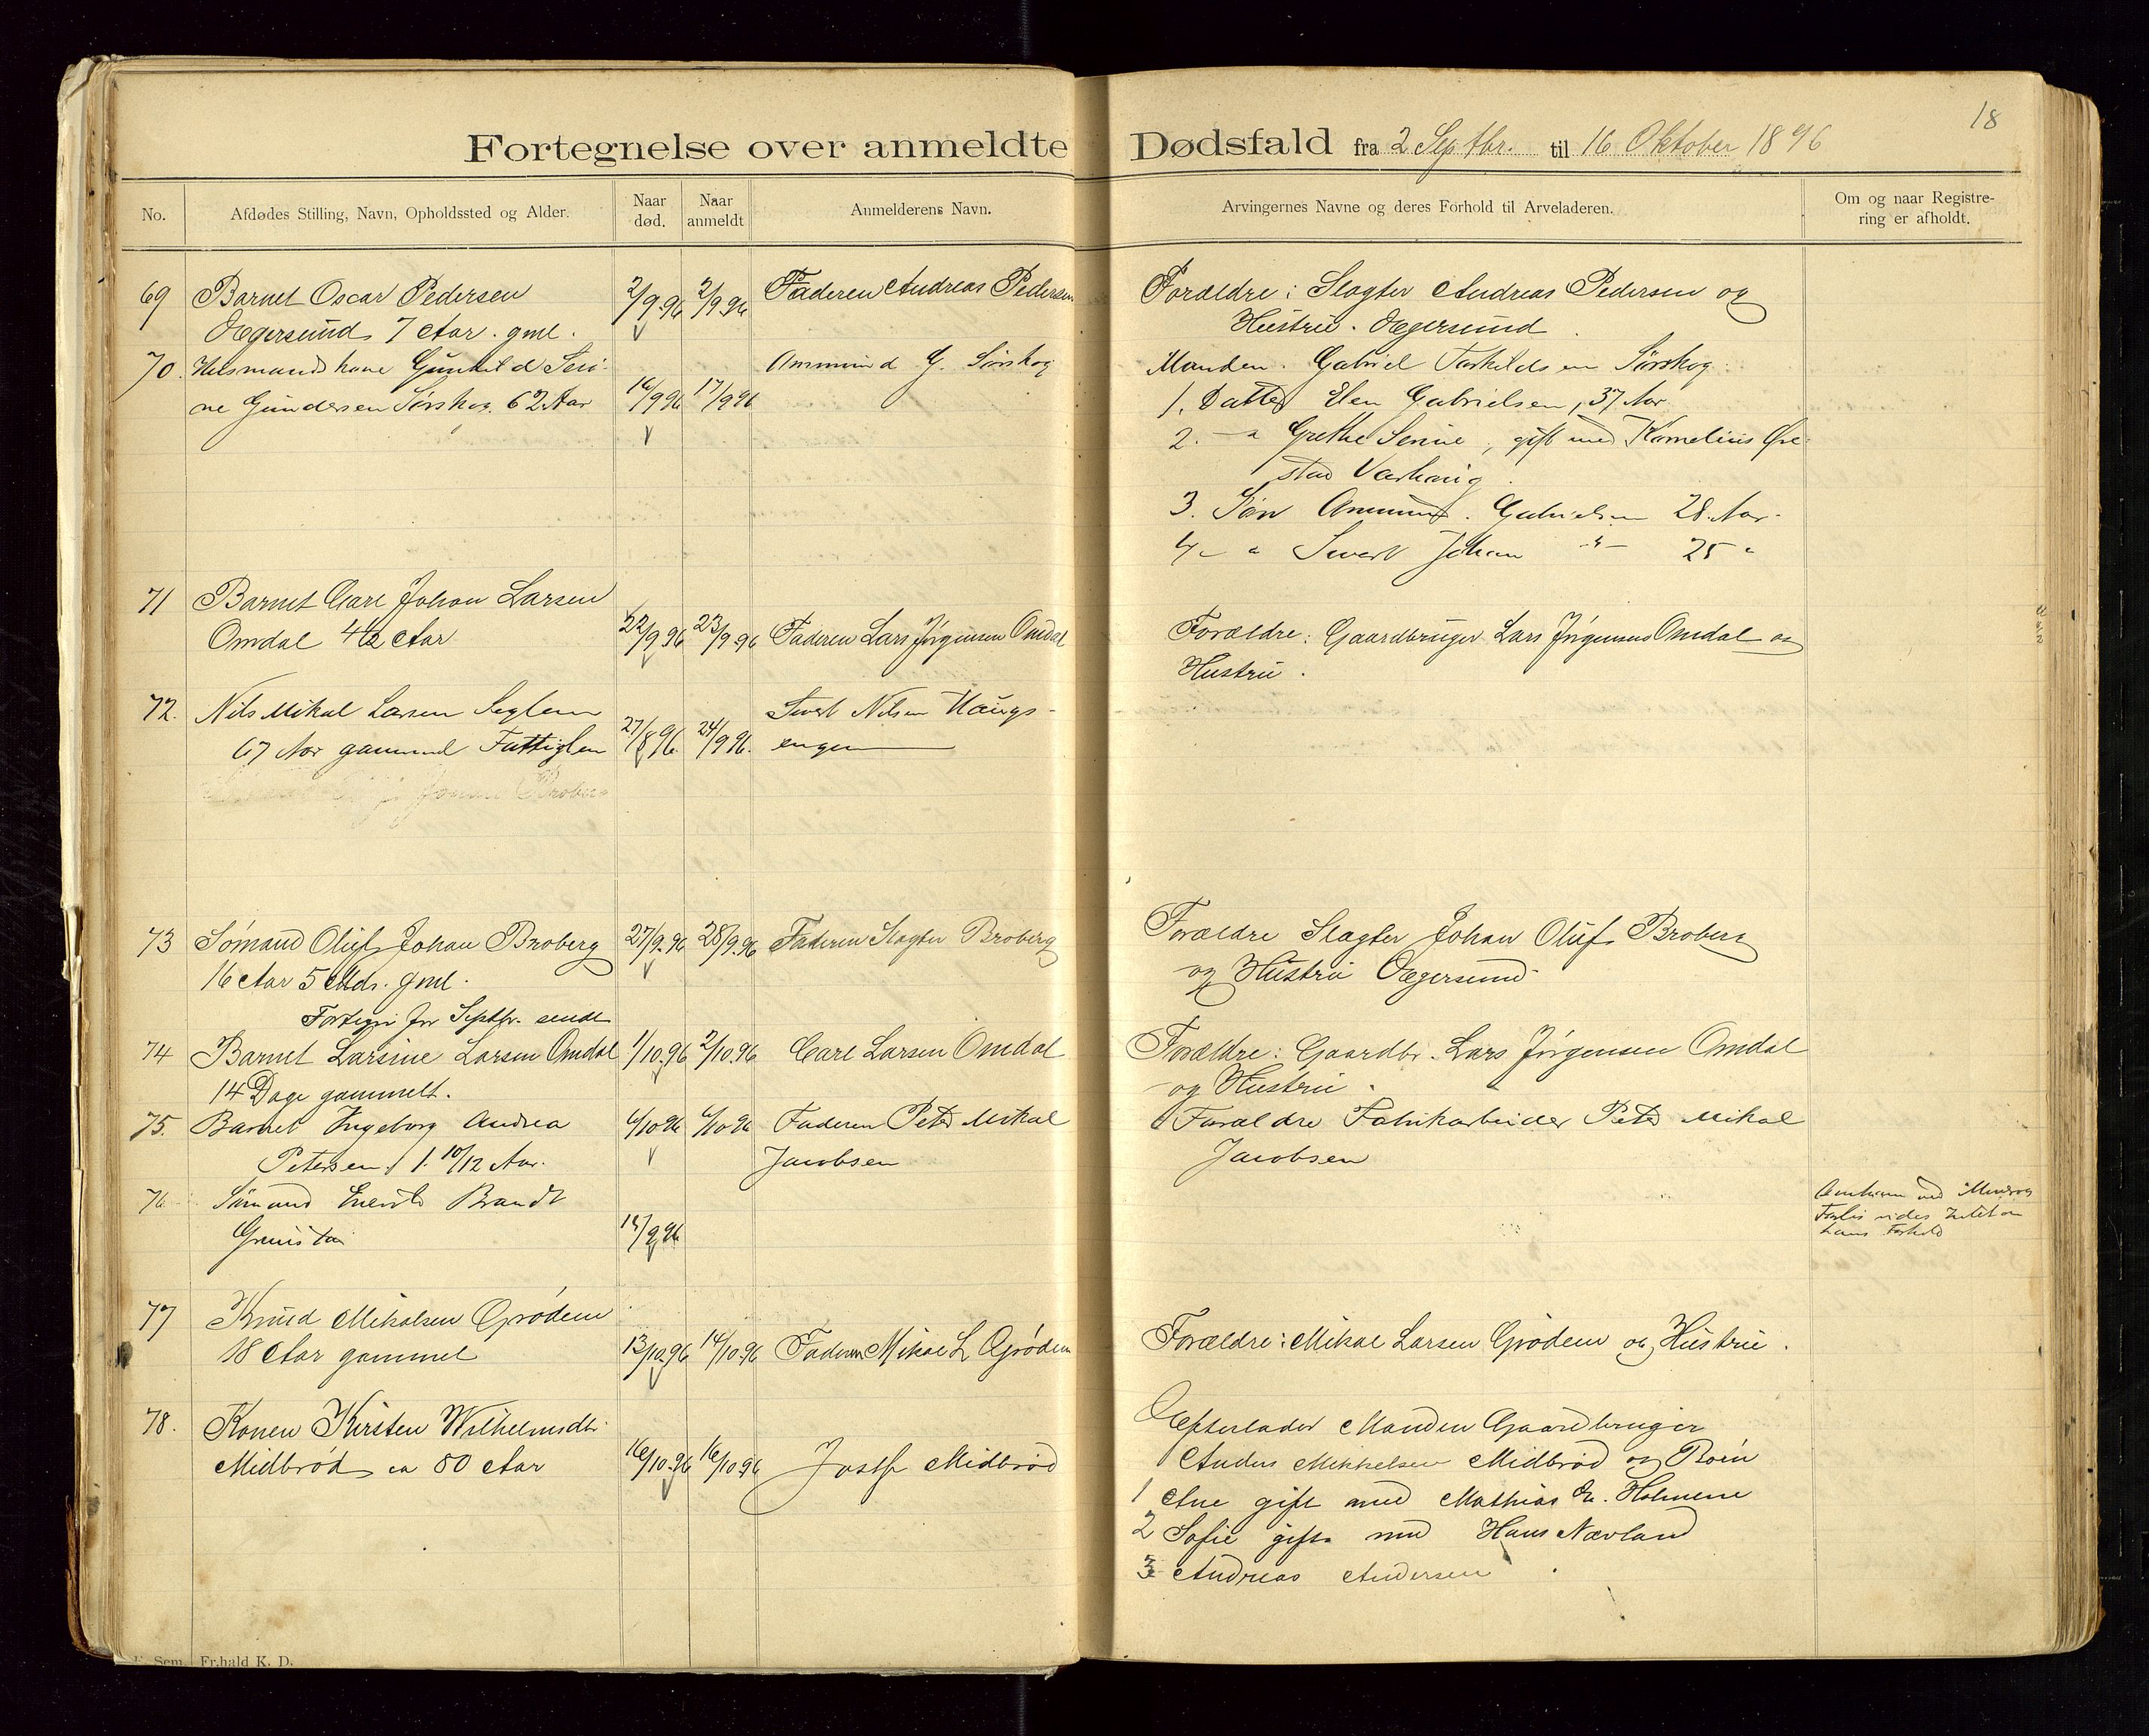 18
Fortegnelse over anmeldte Dødsfald fra 2 Septbr. til 16 Oktober 1896
No.
Afdødes Stilling, Navn, Opholdssted og Alder.
Naar død.
Naar anmeldt
Anmelderens Navn.
Arvingernes Navne og deres Forhold til Arveladeren.
Om og naar Registre-
ring er afholdt.
69 Barnet Oscar Pedersen 2/9.96 2/9.96 Faderen Andreas Pedersen Forældre: Slagter Andreas Pedersen og
Ægersund 7 Aar. gml. Hustru. Ægersund
70. Husmandskone Gunhild Seri- Ammund G. Sirskog Manden. Gabriel Torkildsen Sirskog
ne Gundersen Sirskog. 62 Aar 16/9 96 17/9 96 1. Datter Elen Gabrielsen, 37 Aar
2. - " Grethe Serine, gift med Kornelius Øre-
stad Varhaug
3. Søn Ammund. Gabrielsen 28. Aar.
4 - " Sivert Johan -"- 25 "
71 Barnet Carl Johan Larsen
Omdal 4 1/2 Aar 22/9 96 23/9.96 Faderen Lars Jörgensen Omdal Forældre: Gaardbruger Lars Jörgensen Omdal og
Hustru.
72. Nils Mikal Larsen Seglem Sivert Nilsen Haugs-
67 Aar gammel Fattiglem 27/8 96. 24/9 96. engen
Johan Broberg
73 Sömand Oluf Johan Broberg 27/9.96 28/9.96 Faderen Slagter Broberg Forældre Slagter Johan Oluf Broberg
16 Aar 5 Mdr. gml. og Hustru Ægersund
Fortegn for Septbr. sendt
74 Barnet Larsine Larsen Omdal 1/10.96 2/10.96 Carl Larsen Omdal Forældre: Gaardbr. Lars Jörgensen Omdal
14 Dage gammelt. og Hustru.
75. Barnet Ingeborg Andrea 6/10 96 6/10 96 Faderen Peter Mikal Forældre Fabrikarbeider Peter Mikal
Petersen 1. 10/12 Aar. Jacobsen Jacobsen
76 Sömand Brandt
96
Forlis vides Intet om
hans Forhold
77 Knud Mikalsen Grödem
18 Aar gammel 13/10.96 14/10.96 Faderen Mikal L Grödem Forældre: Mikal Larsen Grödem og Hustru.
78. Konen Kirsten Wilhelmsdtr. Efterlader Manden Gaardbruger
Midbröd ca 80 Aar 16/10.96 16/10.96 Josef Midbröd Anders Mikkelsen Midbröd og Börn
1 Ane gift med Mathias Holmene
2 Sofie gift med Hans Nævland
3 Andreas Andersen
Fr.hald K. D.